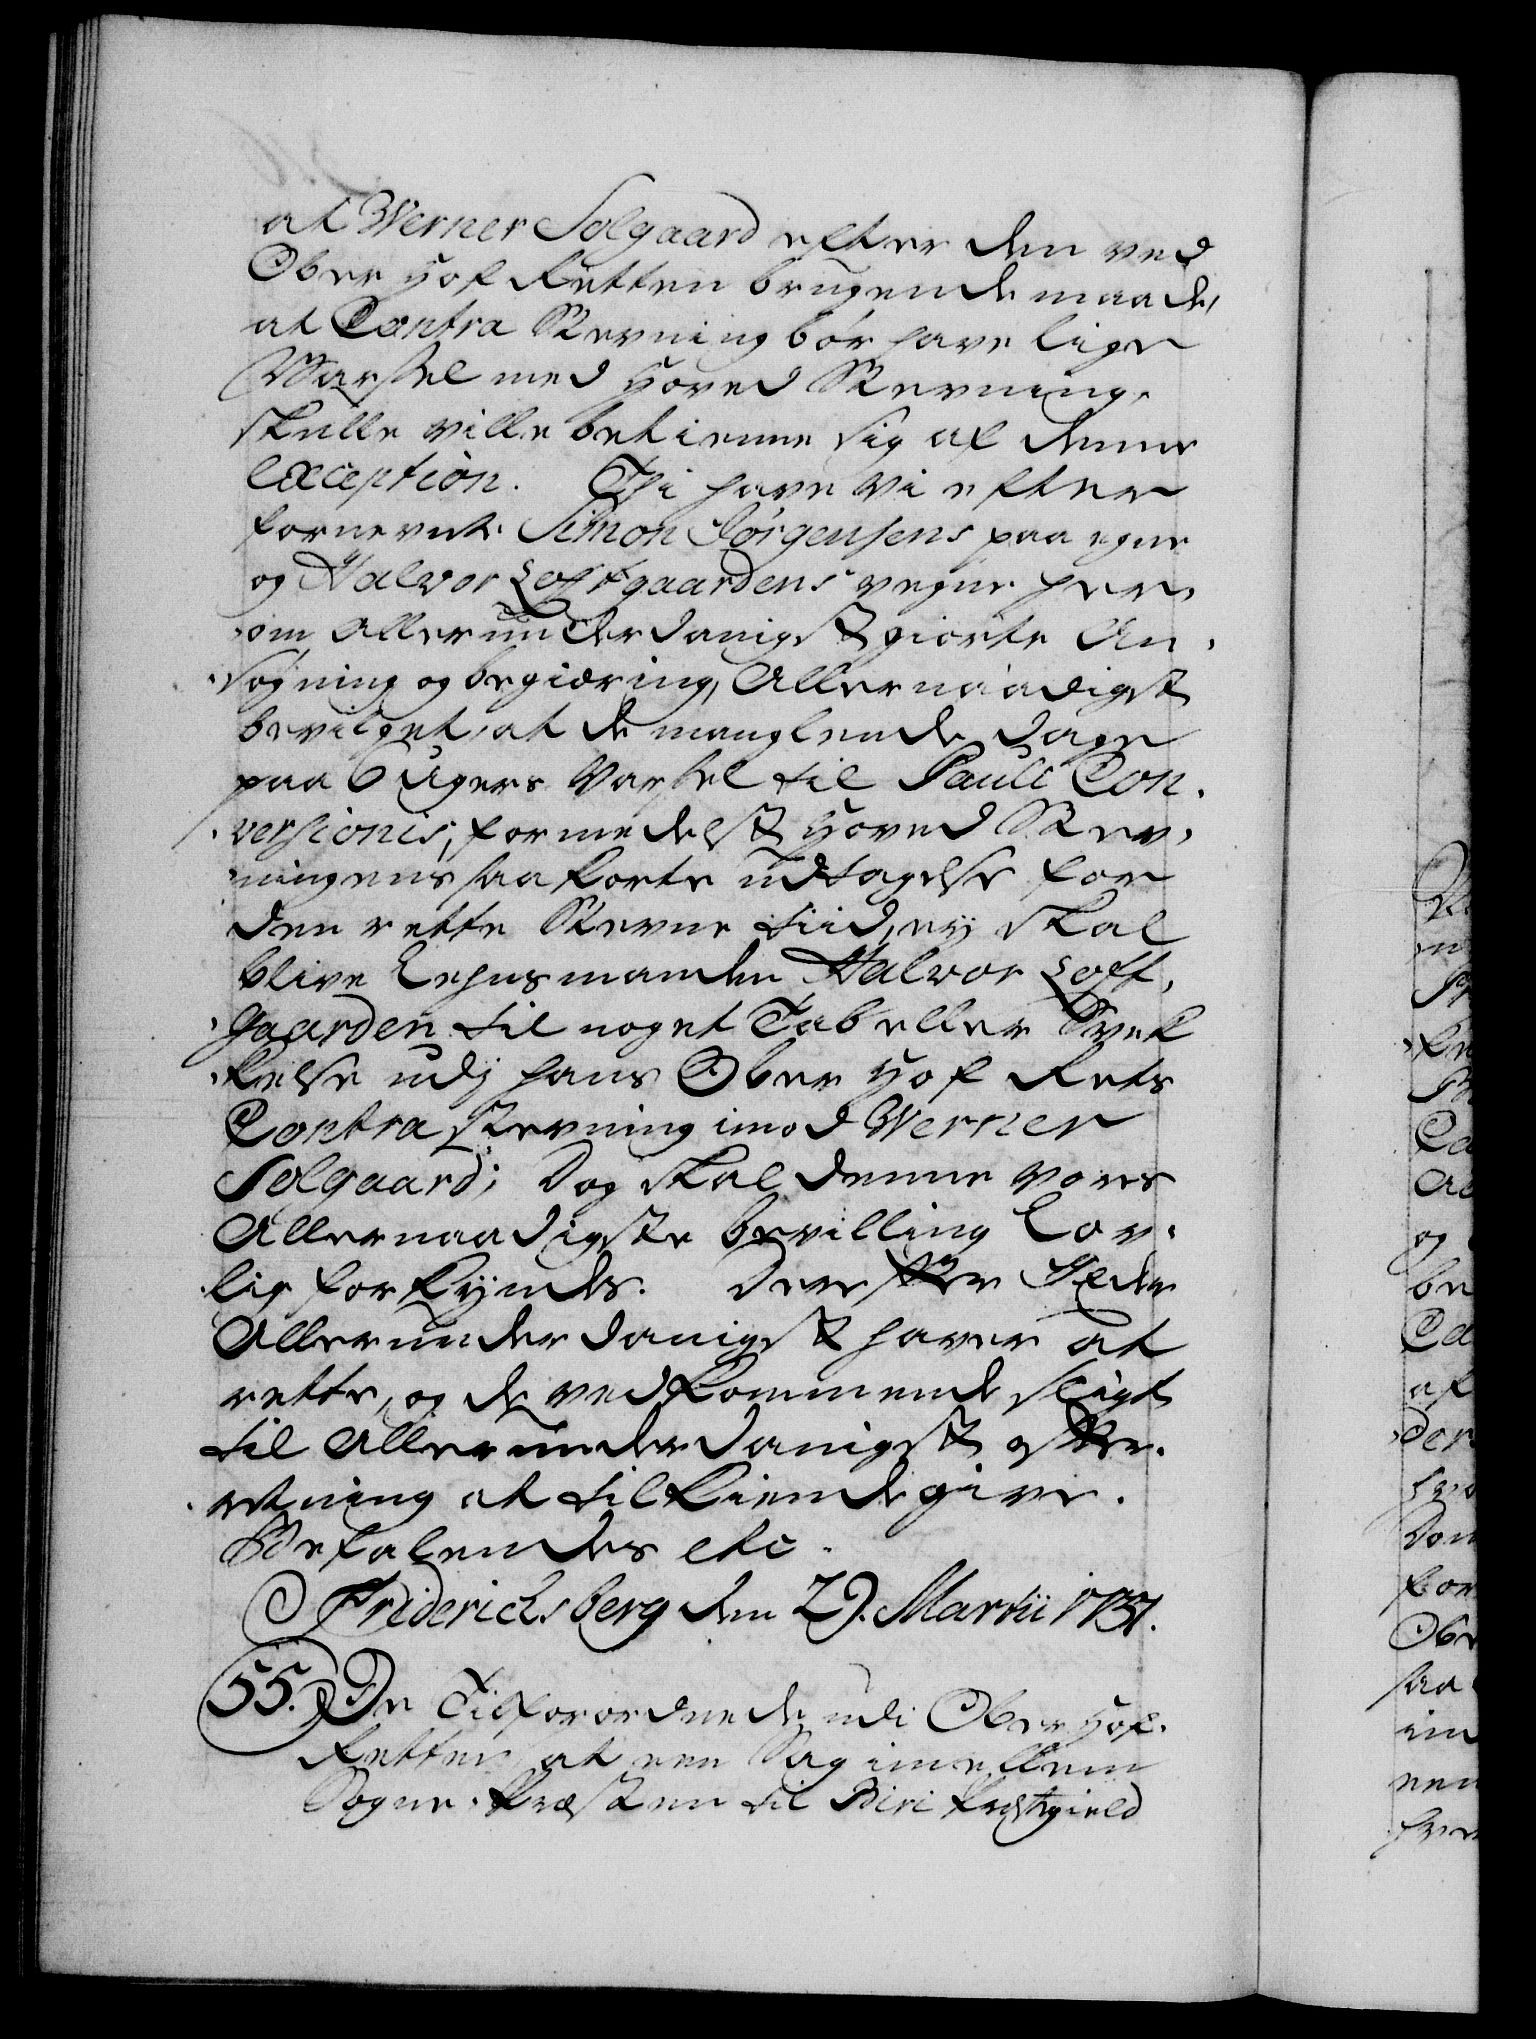 at Werner Solgaard efter den ved
Ober Hof Retten brugende maade,
at Contra Stevning bør have lige
Varssel med Hoved Stevning,
skulle ville betienne sig af denne
Exception. Thi have Vi efter
fornevnte Simon Jørgensens paa egne
og Halvor Loftgaardens vegne her,
om Allerunderdanigst giorte An,
søgning og begiæring, Allernaadigst
bevilget, at de manglende dage
paa 6 Ugers Varsel til Pauli Con,
versionis, formedelst Hoved Stev,
ningens saa korte udtagelse for
den rette Stevne tiid, ey skal
blive Lehnsmanden Halvor Loft,
gaarden til noget Tab eller Svek
kelse udj hans Ober Hof Rets
Contra Stevning imod Werner
Solgaard; Dog skal denne Vores
Allernaadigste bevilling Lov,
lig forkyndes. Derefter I Eder
Allerunderdanigst haver at
rette, og de vedkommende sligt
til Allerunderdanigst efter,
retning at tilkiende give.
Befalendes etc.
Friderichsberg den 29. Martii 1737.
55. De Tilforordnede udi Ober Hof-
Retten at een Sag imellem
Sogne-Præsten til Biri Præstegield